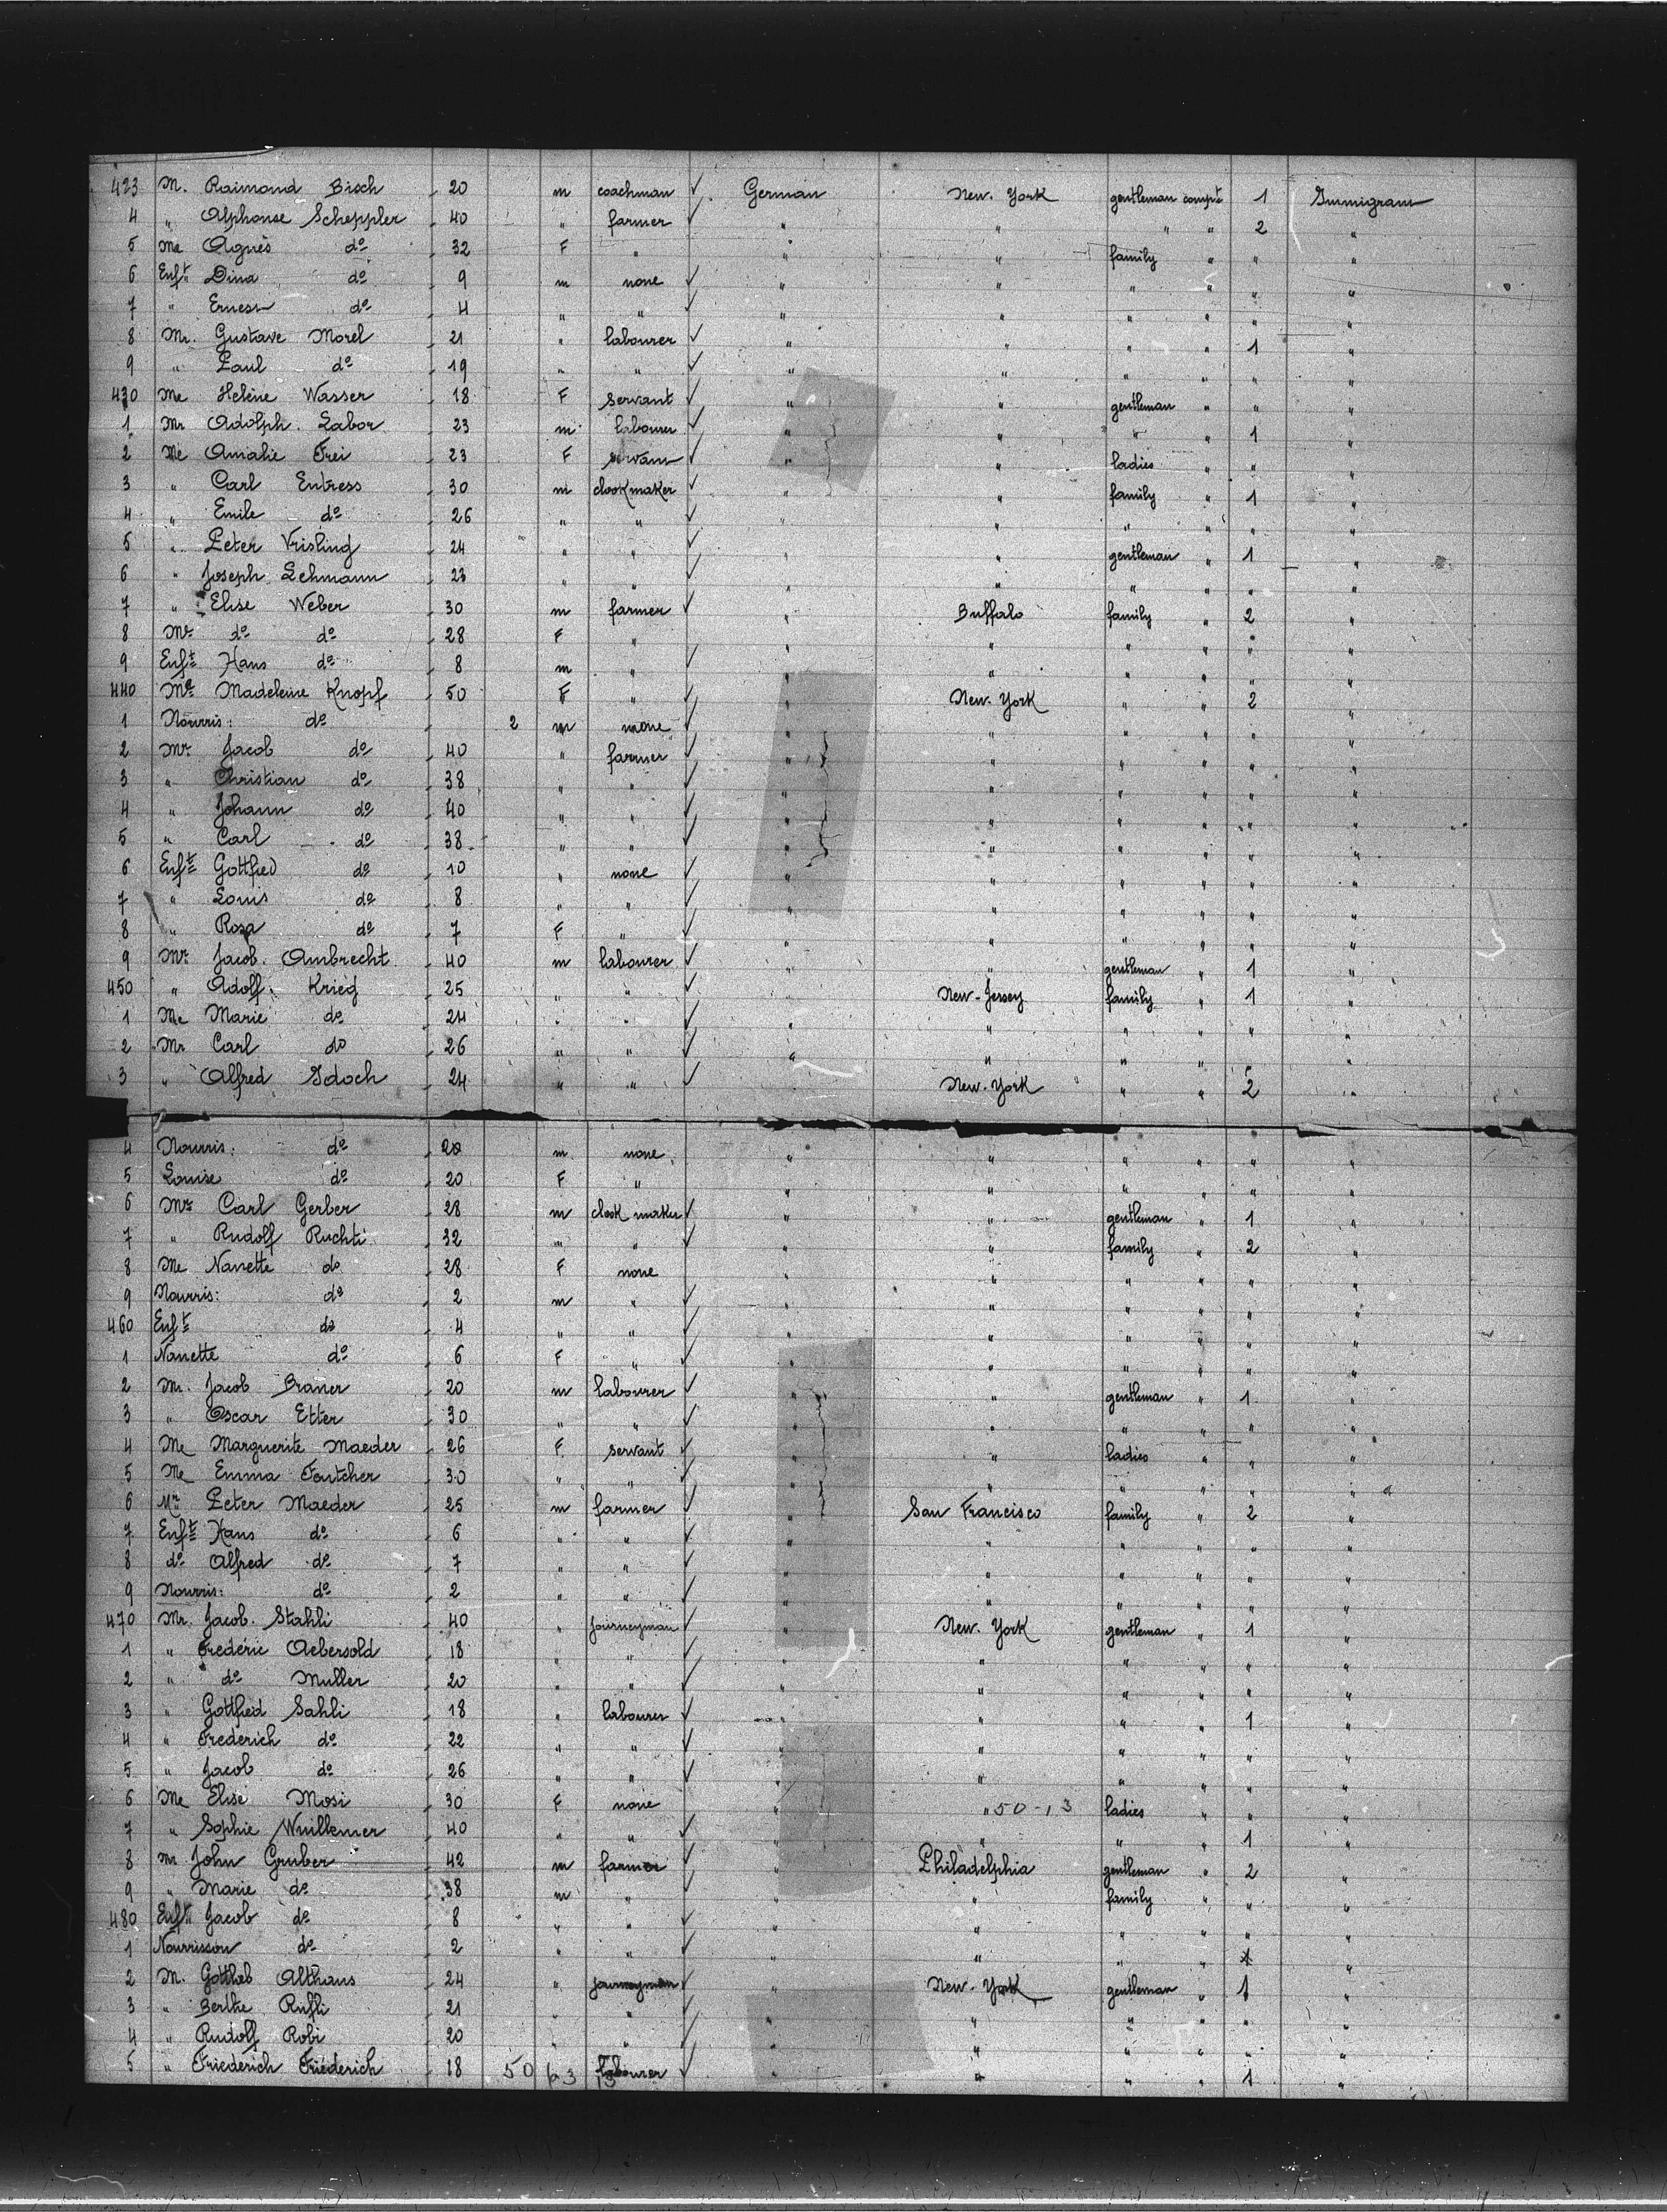 423 M. Raimond Bisch 20 m coachman ✓ German New-York gentleman comp't 1 Immigrant
4 " Alphonse Scheppler 40 " farmer ✓ " " " " 2 "
5 Me Agnès do 32 F " " " family " " "
6 Enft Dina do 9 m none ✓ " " " " " "
7 " Ernest do 4 " " ✓ " " " " " "
8 Mr. Gustave Morel 21 " labourer ✓ " " " " 1 "
9 " Paul do 19 " " ✓ " " " " " "
430 Me Helène Wasser 18 F servant ✓ " " gentleman " " "
1 Mr Adolph. Labor 23 m labourer ✓ " " " " 1 "
2 Me Amalie Frei 23 F servant ✓ " " ladies " " "
3 " Carl Entress 30 m clook maker ✓ " " family " 1 "
4 " Emile do 26 " " ✓ " " " " " "
5 " Peter Vrisling 24 " " ✓ " " gentleman " 1 "
6 " Joseph Lehmann 23 " " ✓ " " " " " "
7 " Elise Weber 30 m farmer ✓ " Buffalo family " 2 "
8 Mr do do 28 F " " " " " " "
9 Enft Hans do 8 m " ✓ " " " " " "
440 Me Madeleine Knopf 50 F " ✓ " New-York " " 2 "
1 Nourris: do 2 m none ✓ " " " " " "
2 Mr Jacob do 40 " farmer ✓ " " " " " "
3 " Christian do 38 " " ✓ " " " " " "
4 " Johann do 40 " " ✓ " " " " " "
5 " Carl do 38 " " ✓ " " " " " "
6 Enft Gottfied do 10 " none ✓ " " " " " "
7 " Louis do 8 " " ✓ " " " " " "
8 " Rosa do 7 F " ✓ " " " " " "
9 Mr Jacob. Ambrecht 40 m labourer ✓ " " gentleman " 1 "
450 " Adolf. Krieg 25 " " ✓ " New-Jersey family " 1 "
1 Me Marie do 24 " " ✓ " " " " " "
2 Mr Carl do 26 " " ✓ " " " " " "
3 " Alfred Idoch 24 " " ✓ " New-York " " 2 "
4 Nourris: do m none " " " " " "
5 Louise do 20 F " " " " " " "
6 Mr Carl Gerber 28 m clook maker ✓ " " gentleman " 1 "
7 " Rudolf Ruchti 32 " " ✓ " " family " 2 "
8 Me Nanette do 28 F none " " " " " "
9 Nourris: do 2 m " ✓ " " " " " "
460 Enft do 4 " " ✓ " " " " " "
1 Nanette do 6 F " ✓ " " " " " "
2 Mr. Jacob Braner 20 m labourer ✓ " " gentleman " 1 "
3 " Oscar Etter 30 " " ✓ " " " " " "
4 Me Marguerite Maeder 26 F servant ✓ " " ladies " " "
5 Me Emma Foutcher 30 " " ✓ " " " " " "
6 Mr Peter Maeder 25 m farmer ✓ " San Francisco family " 2 "
7 Enft Hans do 6 " " ✓ " " " " " "
8 do Alfred do 7 " " ✓ " " " " " "
9 Nourris: do 2 " " ✓ " " " " " "
470 Mr. Jacob. Stahli 40 " journeyman ✓ " New-York gentleman " 1 "
1 " Frederic Aebersold 18 " " ✓ " " " " " "
2 " do Muller 20 " " ✓ " " " " " "
3 " Gottfied Sahli 18 " labourer ✓ " " " " 1 "
4 " Frederich do 22 " " ✓ " " " " " "
5 " Jacob do 26 " " ✓ " " " " " "
6 Me Elise Mosi 30 F none ✓ " " 50-13 ladies " " "
7 " Sophie Wuillemer 40 " " ✓ " " " " 1 "
8 Mr John Gruber 42 m farmer ✓ " Philadelphia gentleman " 2 "
9 " Marie do 38 m " ✓ " " family " " "
480 Enft Jacob do 8 " " ✓ " " " " " "
1 Nourrisson do 2 " " ✓ " " " " 1 "
2 M. Gottlieb Althaus 24 " journeyman ✓ " New-York gentleman " 1 "
3 " Berthe Rufli 21 " " ✓ " " " " " "
4 " Rudolf Robi 20 " " ✓ " " " " " "
5 " Friederich Friederich 18 50 labourer ✓ " " " " 1 "